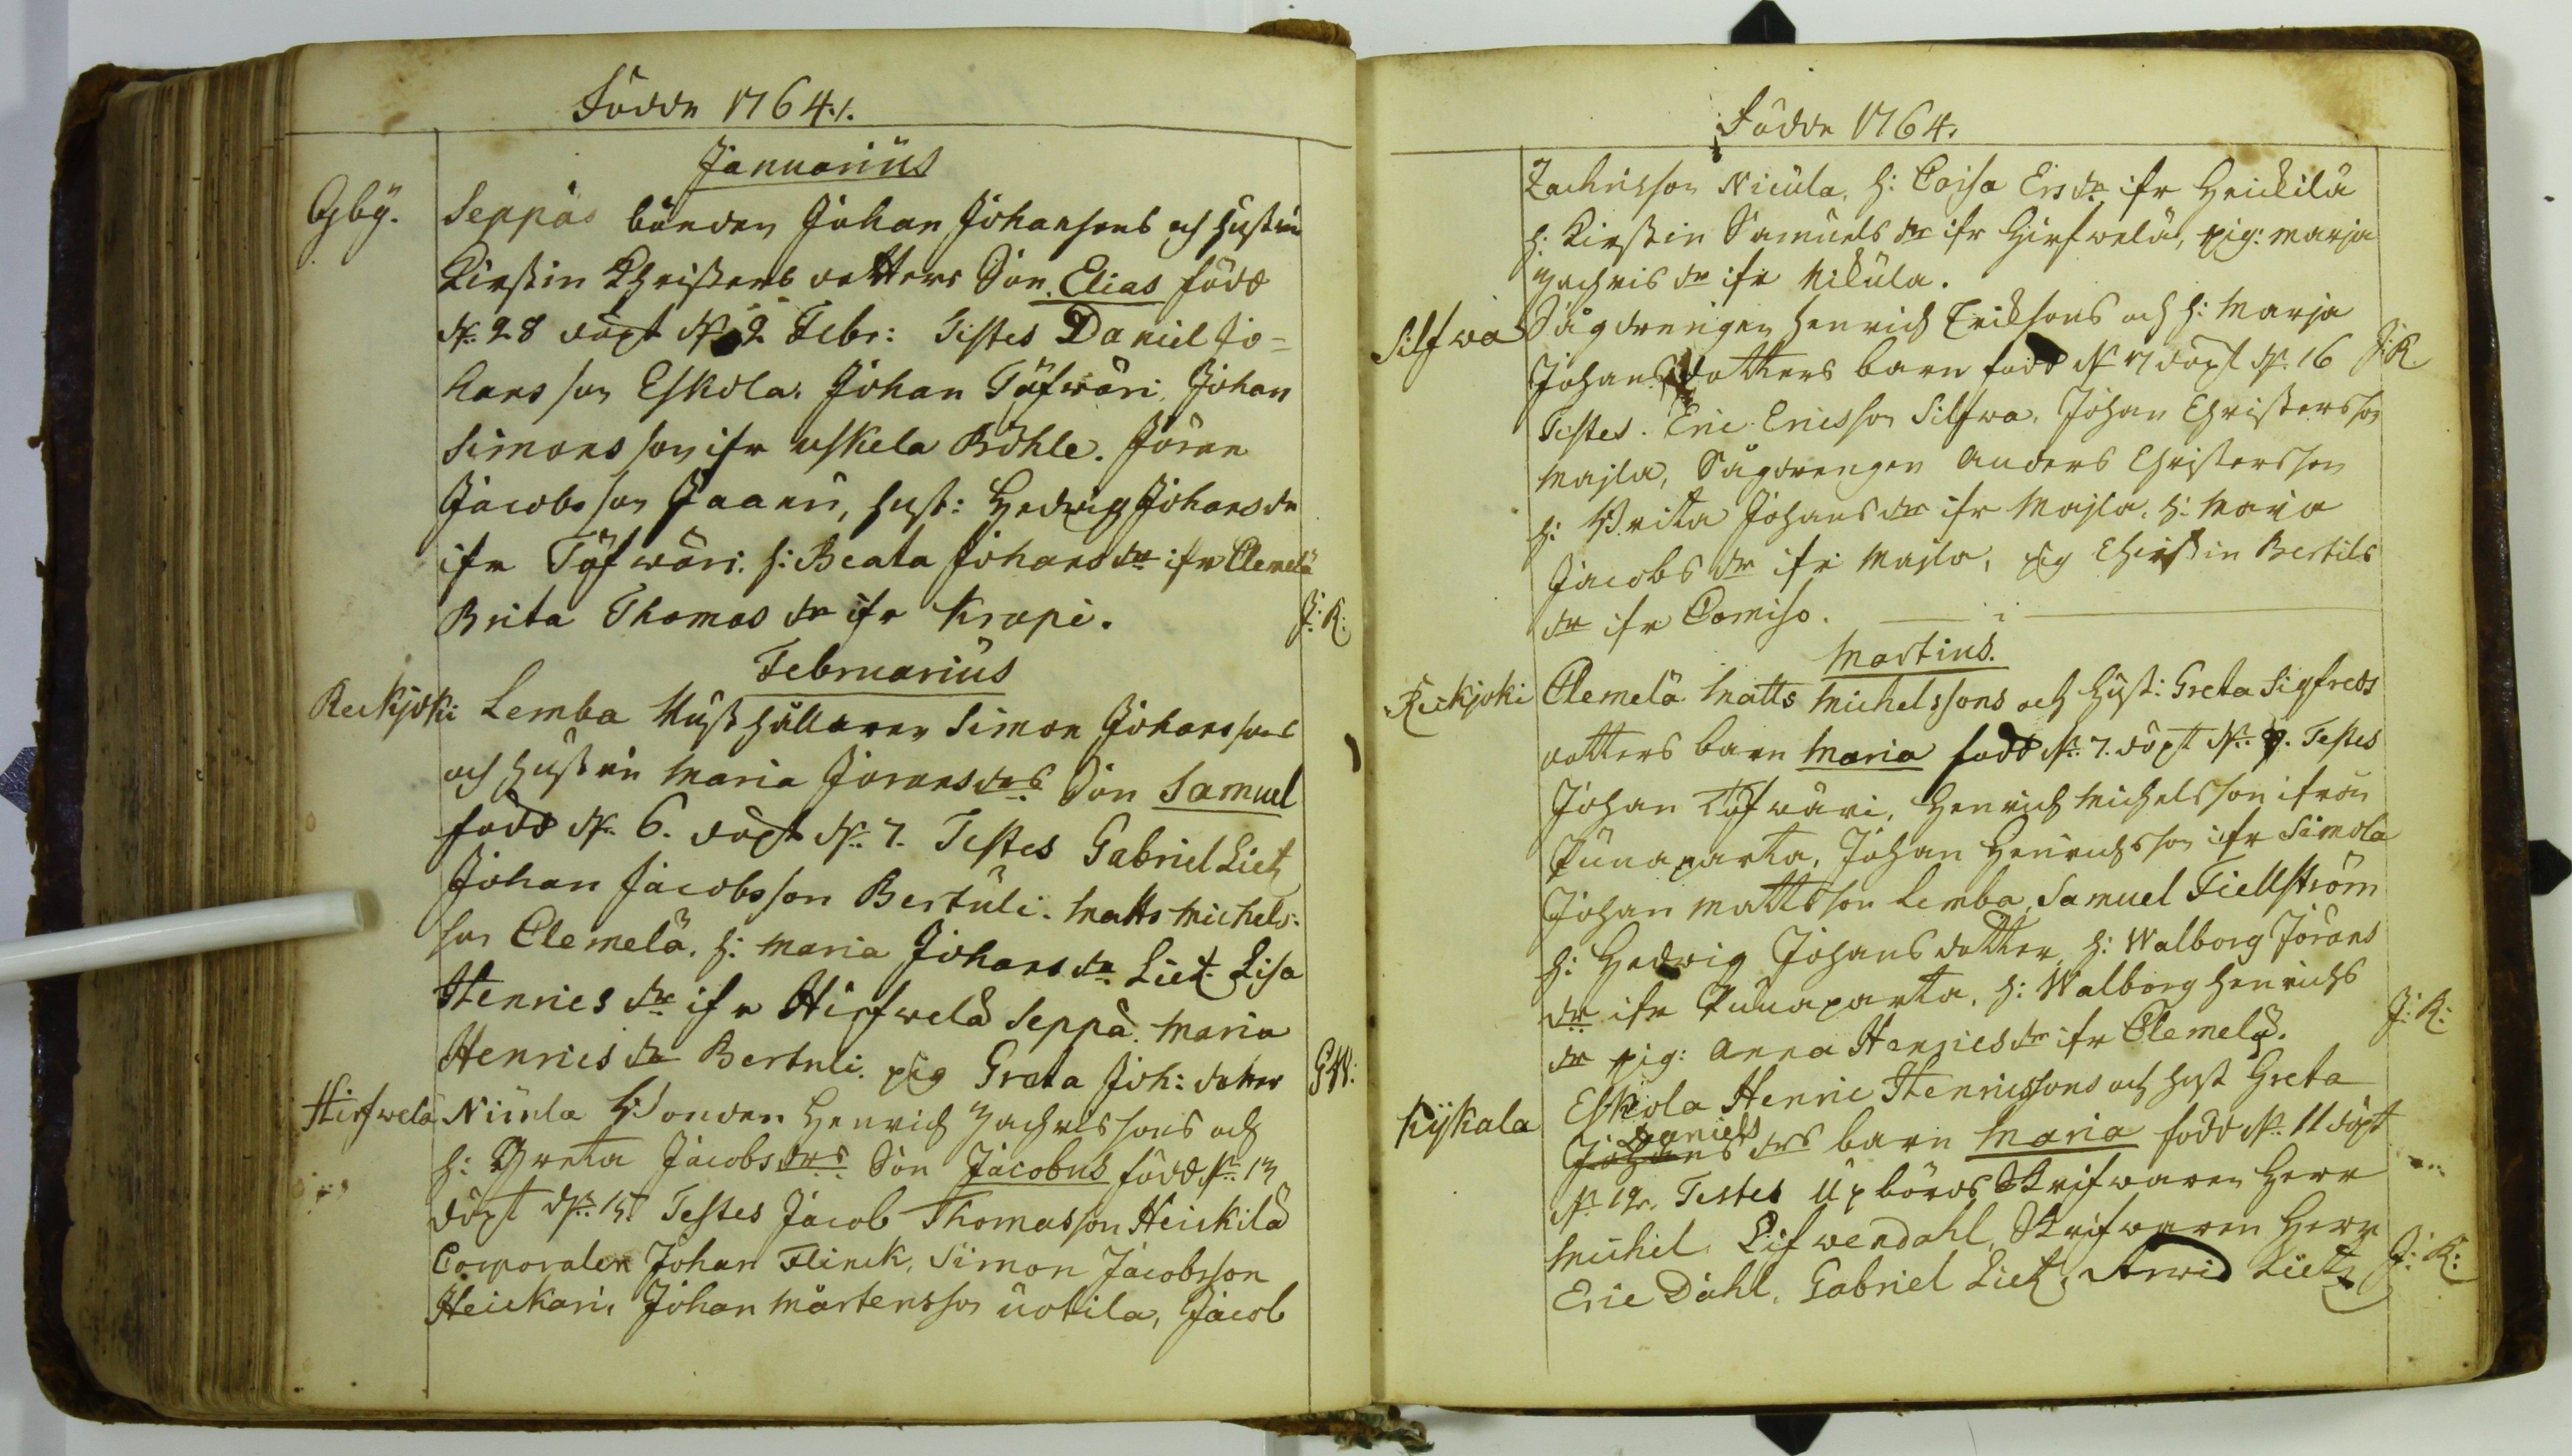 Födde 1764./.
Januarius
Gby. Seppäs bonden Johan Johansons och hustru
Kirstin Christers dotters Son. Elias född
d. 28 döpt d. 2 Febr: Testes Daniel Jo=
hansson Eskola. Johan Töfwäri, Johan
Simonsson ifr uskela Böhle. Jören
Jacobsson Jaari, hust: Hedwig Johansdr
ifr Töfwäri. h: Beata Johansdr ifr Clemelä
Brita Thomasdr ifr Krapi. J: K:
Februarius
Reckijoki Lemba Hushållaren Simon Johanssons
och hustru Maria Joransdrs Son Samuel
född d. 6. döpt d. 7. Testes Gabriel Lietz
Johan Jacobsson Bertuli. Matts Michels-
son Clemelä. h: Maria Johansdr Liet. Lisa
Henricsdr ifr Hirfwelä Seppä. Maria
Henricsdr Bertuli. pig Greta Joh: dotter GW:
Hirfwelä Nicula Bonden Henrich Zachrissons och
h: Greta Jacobsdrs Son Jacobus född d. 13
döpt d. 15. Testes Jacob Thomasson Heickilä
Corporalen Johan Flinck, Simon Jacobsson
Heickari, Johan Mårtensson uotila, Jacob
Födde 1764.
Zachrisson Nicula, h: Caisa Ersdr ifr Heickilä
h: Kirstin Samuelsdr ifr Hirfwelä, pig: Marja
Zachrisdr ifr Nikula.
Silfwa Sågdrengen Henrich Eriksons och h: Marja
Johansdotters barn född d. 7 döpt d. 16 J: K
Testes. Eric Ericsson Silfwa, Johan Christersson
Majla, Sågdrengen Anders Christersson
h: Brita Johansdr ifr Majla. h: Maria
Jacobsdr ifr Majla, pig Christin Bertils
dr ifr Comiso.
Martius.
Reckjoki Clemelä Matts Michelssons och Hust: Greta Sigfreds
dotters barn Maria född d. 7. döpt d. 9. Testes
Johan Töfwäri, Henrich Michelsson ifrån
Punaparta, Johan Henrichsson ifr Simola
Johan Mattsson Lemba, Samuel Fiellström
h: Hedwig Johansdotter, h: Walborg Jörans
dr ifr Punaparta, h: Walborg Henrichs
dr pig: Anna Henricsdr ifr Clemelä. J: K:
Kijkala Eskola Henric Henricssons och hust Greta
Daniels
Johans drs barn Maria född d. 11 döpt
d. 12. Testes Upbörds Skrifwaren Herr
Michel Lifwendahl, Skrifwaren Herr
Eric Dahl. Gabriel Lietz, Arwid Lietz J: K: